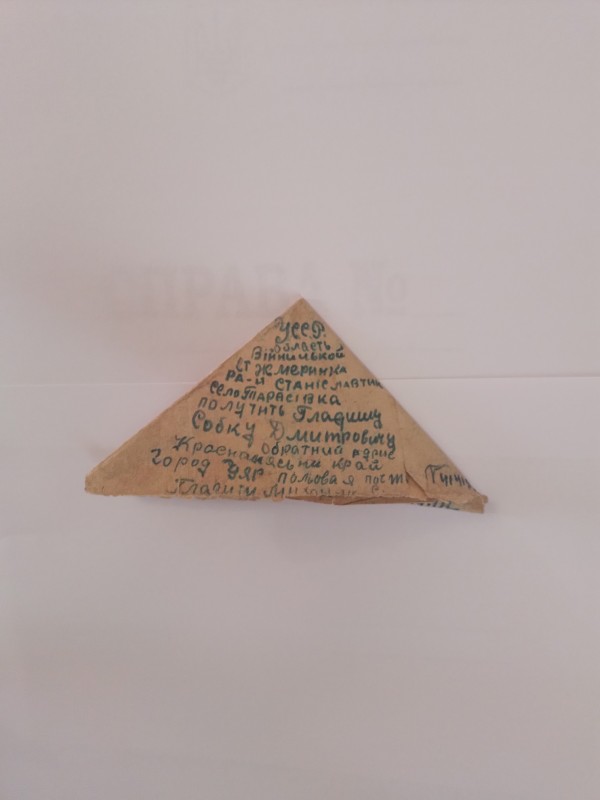 УССР.
область
Вінницькой
Ст Жмеринка
РА-й Станіславтик
село Тарасівка
получить Гладишу
Собку Дмитровичу
обратний адрис
Красноярськи край
город Уяр полювая
Гладиш